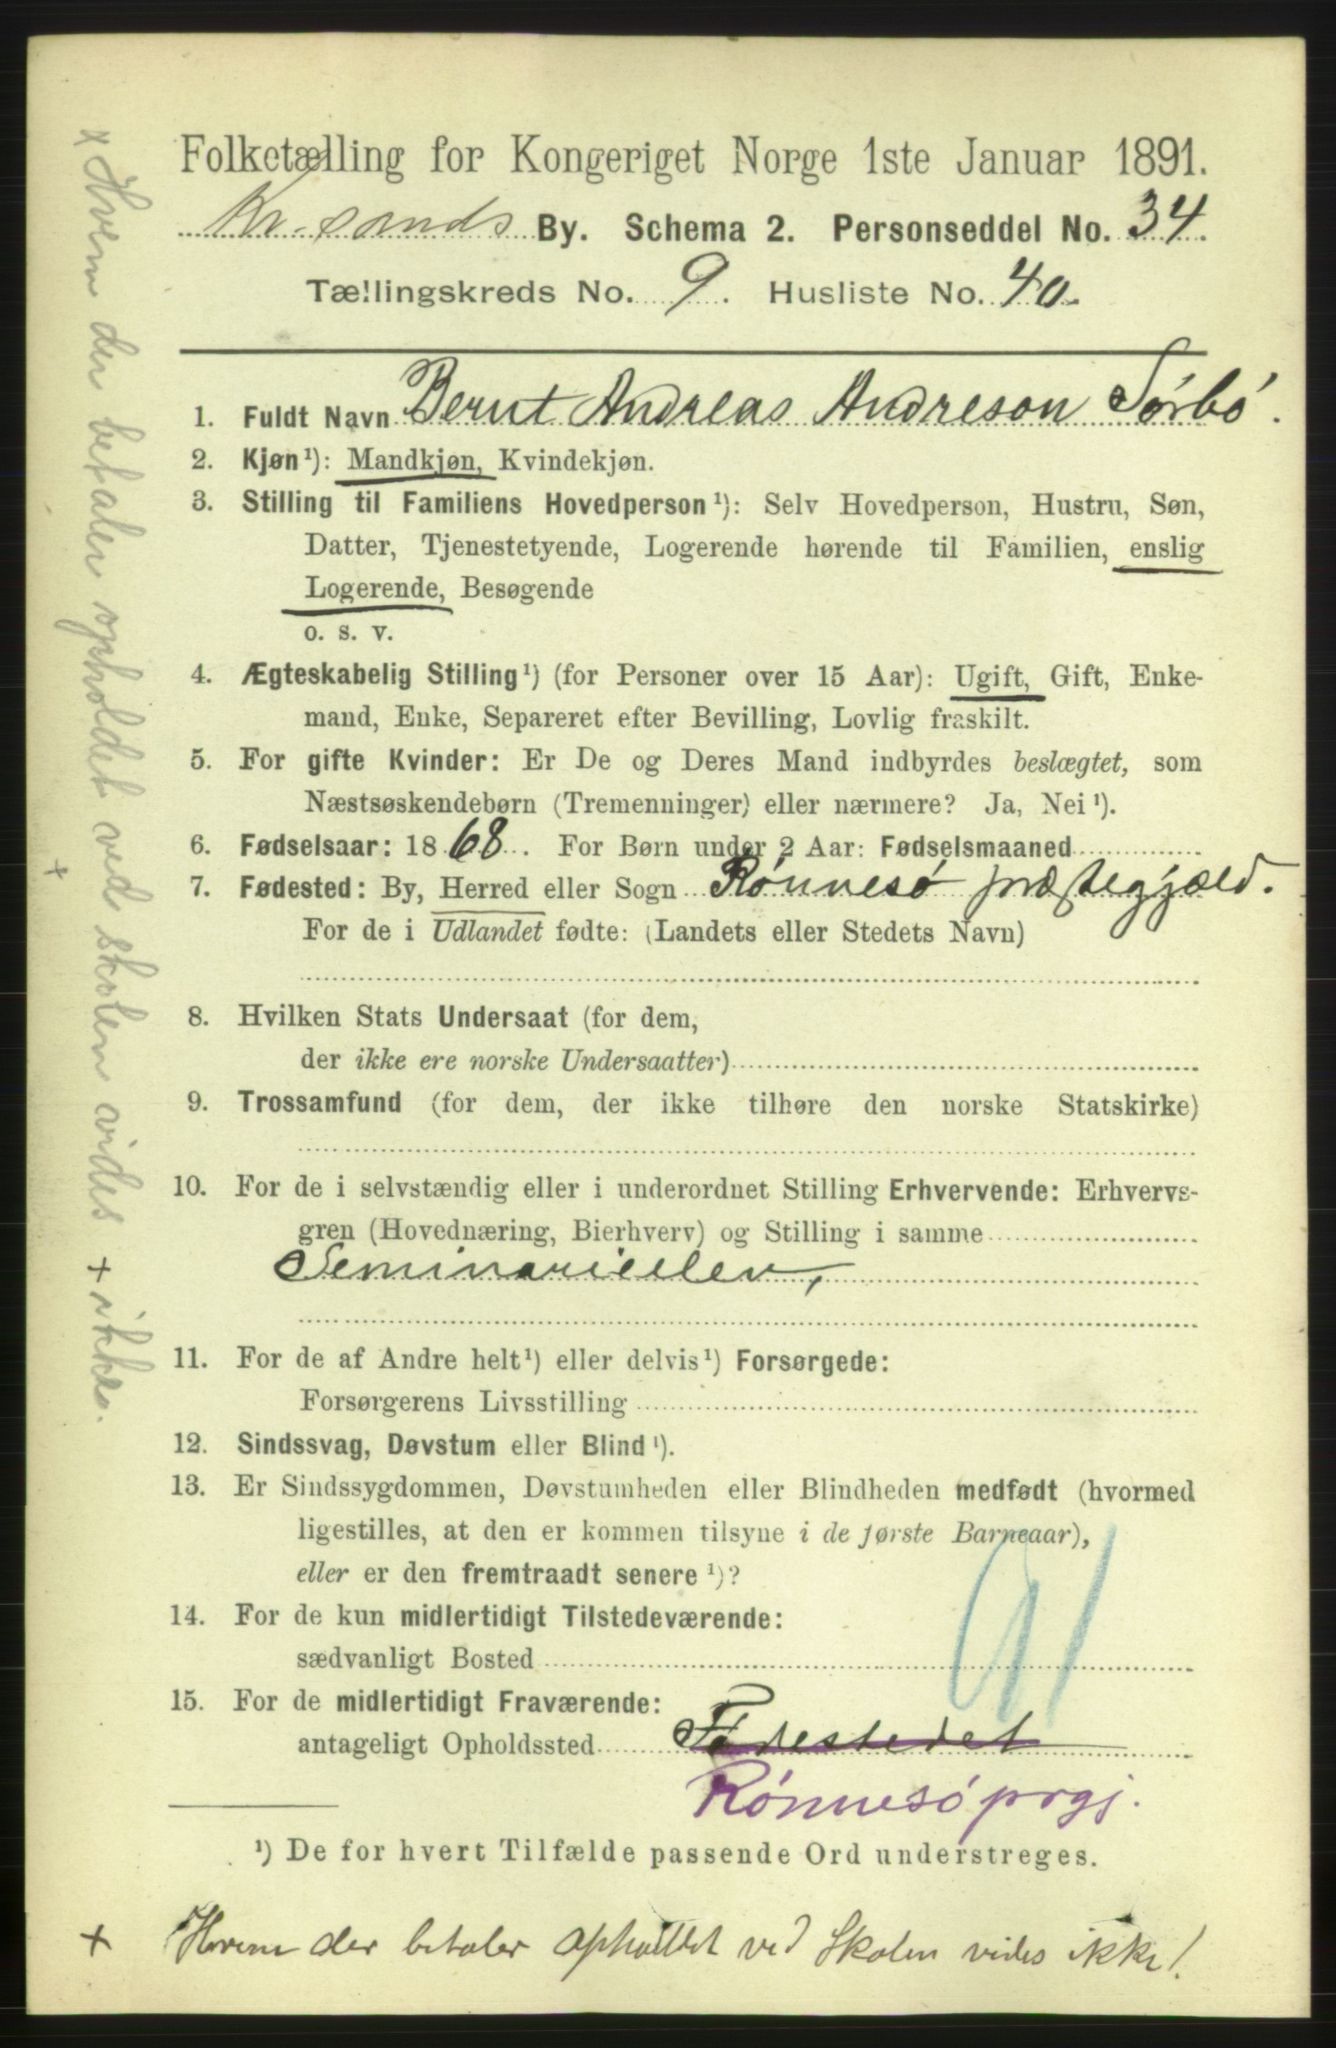 Folketælling for Kongeriget Norge 1ste Januar 1891.
Kr.sands By. Schema 2. Personseddel No. 34.
Tællingskreds No. 9. Husliste No. 40.
1. Fuldt Navn Bernt Andreas Andreson Sørbö.
2. Kjøn¹): Mandkjøn, Kvindekjøn.
3. Stilling til Familiens Hovedperson¹): Selv Hovedperson, Hustru, Søn,
Datter, Tjenestetyende, Logerende hørende til Familien, enslig
Logerende, Besøgende
o. s. v.
4. Ægteskabelig Stilling¹) (for Personer over 15 Aar): Ugift, Gift, Enke-
mand, Enke, Separeret efter Bevilling, Lovlig fraskilt.
5. For gifte Kvinder: Er De og Deres Mand indbyrdes beslægtet, som
Næstsøskendebørn (Tremenninger) eller nærmere? Ja, Nei¹).
6. Fødselsaar: 1868. For Børn under 2 Aar: Fødselsmaaned
7. Fødested: By, Herred eller Sogn Rönnesö præstegjæld.
For de i Udlandet fødte: (Landets eller Stedets Navn)
8. Hvilken Stats Undersaat (for dem,
der ikke ere norske Undersaatter)
9. Trossamfund (for dem, der ikke tilhøre den norske Statskirke)
10. For de i selvstændig eller i underordnet Stilling Erhvervende: Erhvervs-
gren (Hovednæring, Bierhverv) og Stilling i samme
Seminarielev,
11. For de af Andre helt¹) eller delvis¹) Forsørgede:
Forsørgerens Livsstilling
12. Sindssvag, Døvstum eller Blind¹).
13. Er Sindssygdommen, Døvstumheden eller Blindheden medfødt (hvormed
ligestilles, at den er kommen tilsyne i de første Barneaar),
eller er den fremtraadt senere¹)?
14. For de kun midlertidigt Tilstedeværende:
sædvanligt Bosted
15. For de midlertidigt Fraværende:
antageligt Opholdssted Fødestedet
Rönnesö prgj.
91
¹) De for hvert Tilfælde passende Ord understreges.
+ Hvem der betaler opholdet ved Skolen vides ikke!
x Hvem der betaler opholdet ved skolen vides + ikke.
+